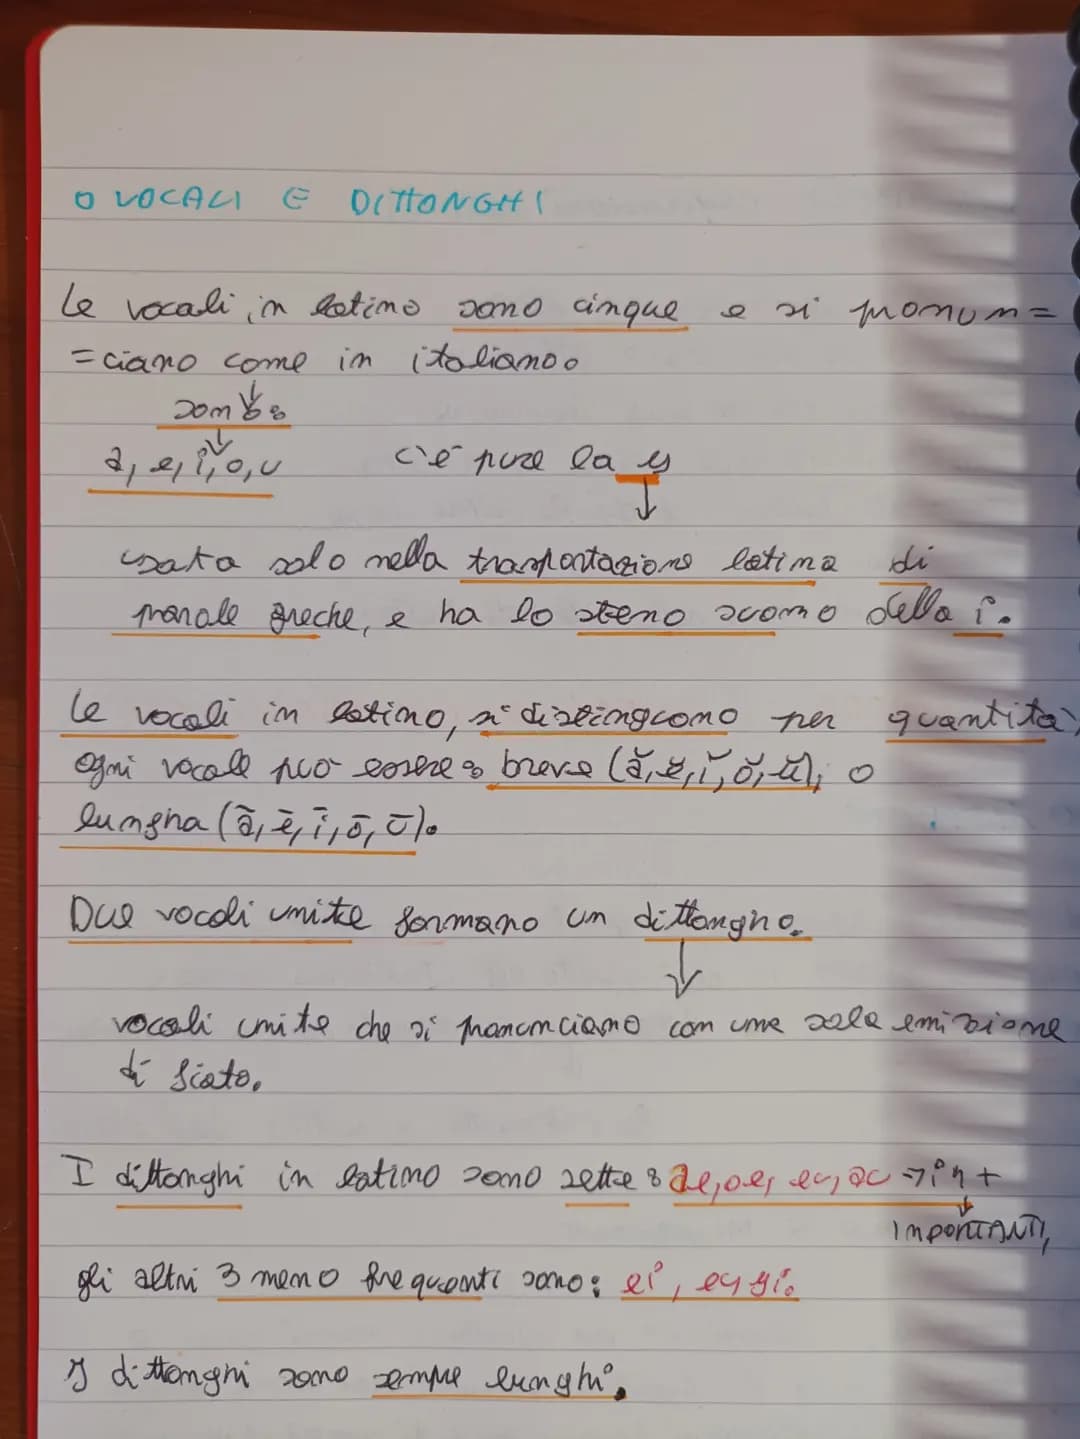 ○ VOCALI E DITTONGHI
Le vocali, in latino sono cinque e si pronun=
=ciano come in italiano.
sono:
a, e, i, o, u c'è pure la y
usata solo nella trasportazione latina di
parole greche, e ha lo stesso suono della i.
Le vocali in latino, si distinguono per quantità,
ogni vocale può essere: breve (ă, ĕ, ĭ, ŏ, ŭ), o
lungha (ā, ē, ī, ō, ū).
Due vocali unite formano un dittongho.
vocali unite che si pronunciano con una sola emissione
di fiato.
I dittonghi in latino sono sette: ae, oe, eu, au → i 4 +
IMPORTANTI,
gli altri 3 meno frequenti sono: ei, yi.
I dittonghi sono sempre lunghi.